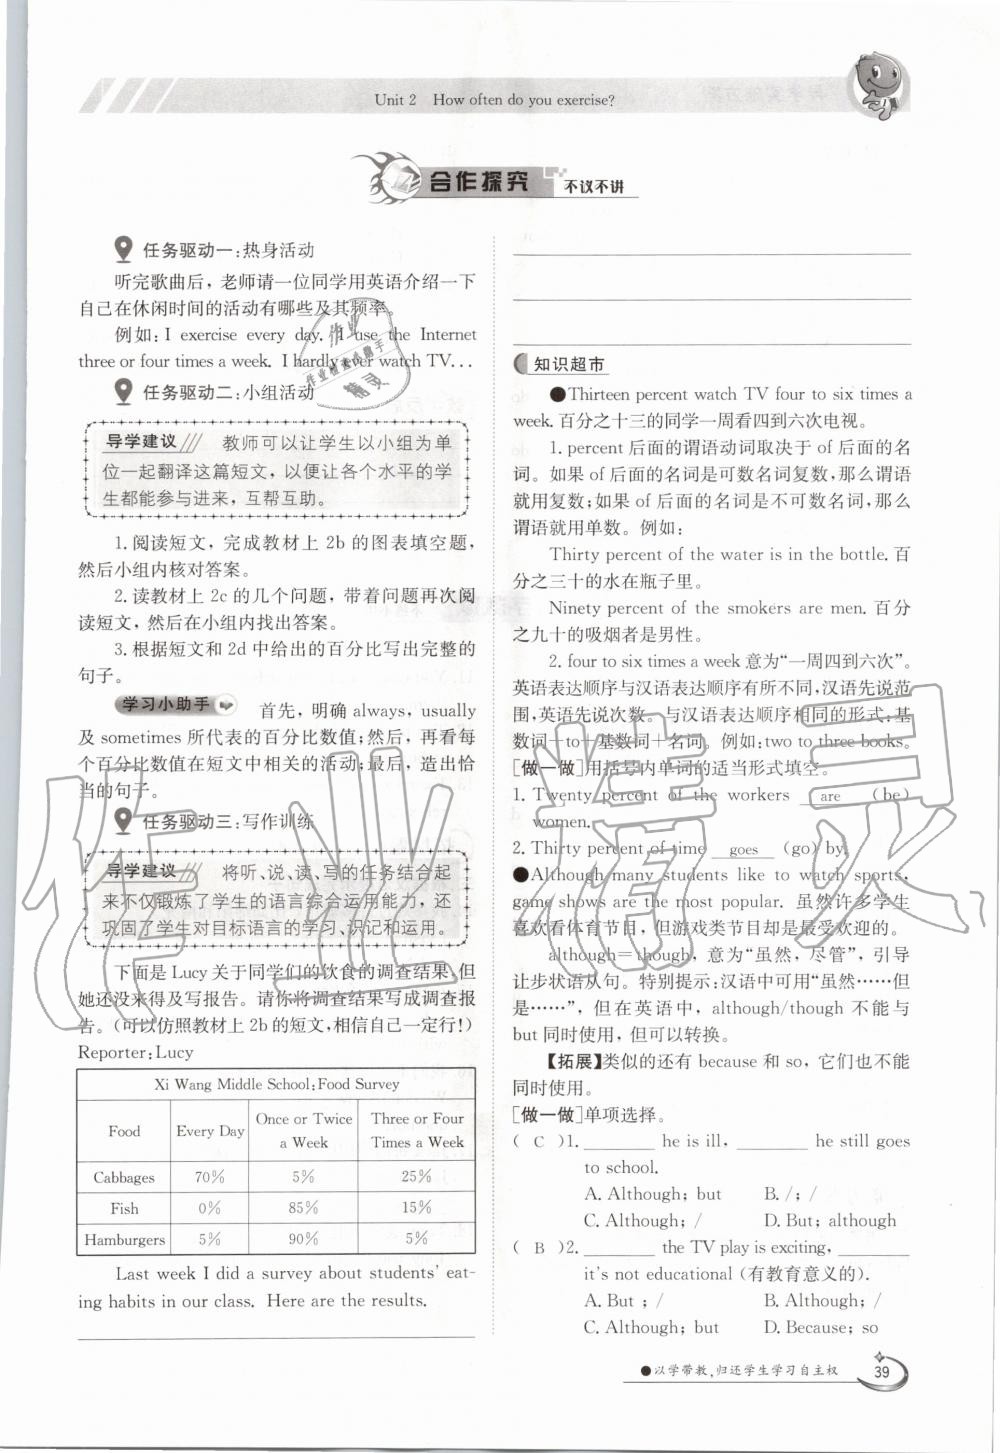 Unit 2 How often do you exercise?
合作探究 不议不讲
任务驱动一:热身活动
听完歌曲后，老师请一位同学用英语介绍一下
自己在休闲时间的活动有哪些及其频率。
例如:I exercise every day. I use the Internet
three or four times a week. I hardly ever watch TV...
任务驱动二:小组活动
导学建议 教师可以让学生以小组为单
位一起翻译这篇短文，以便让各个水平的学
生都能参与进来，互帮互助。
1.阅读短文，完成教材上 2b 的图表填空题，
然后小组内核对答案。
2.读教材上 2c 的几个问题，带着问题再次阅
读短文，然后在小组内找出答案。
3.根据短文和 2d 中给出的百分比写出完整的
句子。
学习小助手 首先，明确 always, usually
及 sometimes 所代表的百分比数值;然后，再看每
个百分比数值在短文中相关的活动;最后，造出恰
当的句子。
任务驱动三:写作训练
导学建议 将听、说、读、写的任务结合起
来不仅锻炼了学生的语言综合运用能力，还
巩固了学生对目标语言的学习、识记和运用。
下面是 Lucy 关于同学们的饮食的调查结果,但
她还没来得及写报告。请你将调查结果写成调查报
告。(可以仿照教材上 2b 的短文,相信自己一定行!)
Reporter:Lucy
Xi Wang Middle School:Food Survey
Food Every Day Once or Twice a Week Three or Four Times a Week
Cabbages 70% 5% 25%
Fish 0% 85% 15%
Hamburgers 5% 90% 5%
Last week I did a survey about students' eat-
ing habits in our class. Here are the results.
知识超市
●Thirteen percent watch TV four to six times a
week. 百分之十三的同学一周看四到六次电视。
1. percent 后面的谓语动词取决于 of 后面的名
词。如果 of 后面的名词是可数名词复数，那么谓语
就用复数;如果 of 后面的名词是不可数名词，那么
谓语就用单数。例如:
Thirty percent of the water is in the bottle. 百
分之三十的水在瓶子里。
Ninety percent of the smokers are men. 百分
之九十的吸烟者是男性。
2. four to six times a week 意为“一周四到六次”。
英语表达顺序与汉语表达顺序有所不同,汉语先说范
围,英语先说次数。与汉语表达顺序相同的形式:基
数词+to+基数词+名词。例如:two to three books。
[做一做]用括号内单词的适当形式填空。
1. Twenty percent of the workers are (be)
women.
2. Thirty percent of time goes (go) by.
●Although many students like to watch sports,
game shows are the most popular. 虽然许多学生
喜欢看体育节目，但游戏类节目却是最受欢迎的。
although=though，意为“虽然，尽管”，引导
让步状语从句。特别提示:汉语中可用“虽然……但
是……”，但在英语中，although/though 不能与
but 同时使用，但可以转换。
【拓展】类似的还有 because 和 so，它们也不能
同时使用。
[做一做]单项选择。
( C )1. ________ he is ill, ________ he still goes
to school.
A. Although; but B. /; /
C. Although; / D. But; although
( B )2. ________ the TV play is exciting, ________
it's not educational (有教育意义的).
A. But ; / B. Although; /
C. Although; but D. Because; so
●以学带教,归还学生学习自主权
39
作业精灵